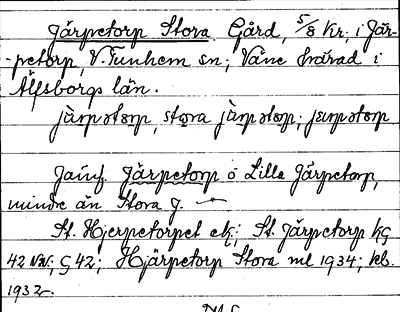 Järpetorp Stora Gård, 5/8 kr. i Jär-
-petorp, V. Tunhem sn; Väne härad i
Älfsborgs län.
järpətərp, stora jàrpətərp; jerpətorp
Jämf. Järpetorp o Lilla Järpetorp,
mindre än Stora J.
St. Hjerpetorpet ek; St. Järpetorp kG
42 NV.; G 42; Hjärpetorp Stora ml 1934; kb.
1932.